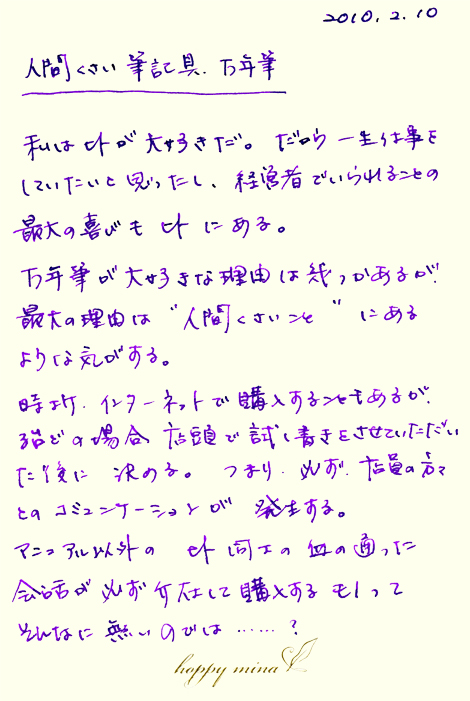 2010.2.10
人間くさい筆記具.万年筆
私は人が大好きだ。だから一生仕事を
していたいと思ったし、経営者でいられることの
最大の喜びも人にある。
万年筆が大好きな理由は幾つかあるが、
最大の理由は"人間くさいこと"にある
ような気がする。
時より、インターネットで購入することもあるが、
殆どの場合店頭で試し書きをさせていただい
た後に決める。つまり、必ず、店員の方々
とのコミュニケーションが発生する。
マニュアル以外の人同士の血の通った
会話が必ず介在して購入するモノって
そんなに無いのでは……?
happy mina